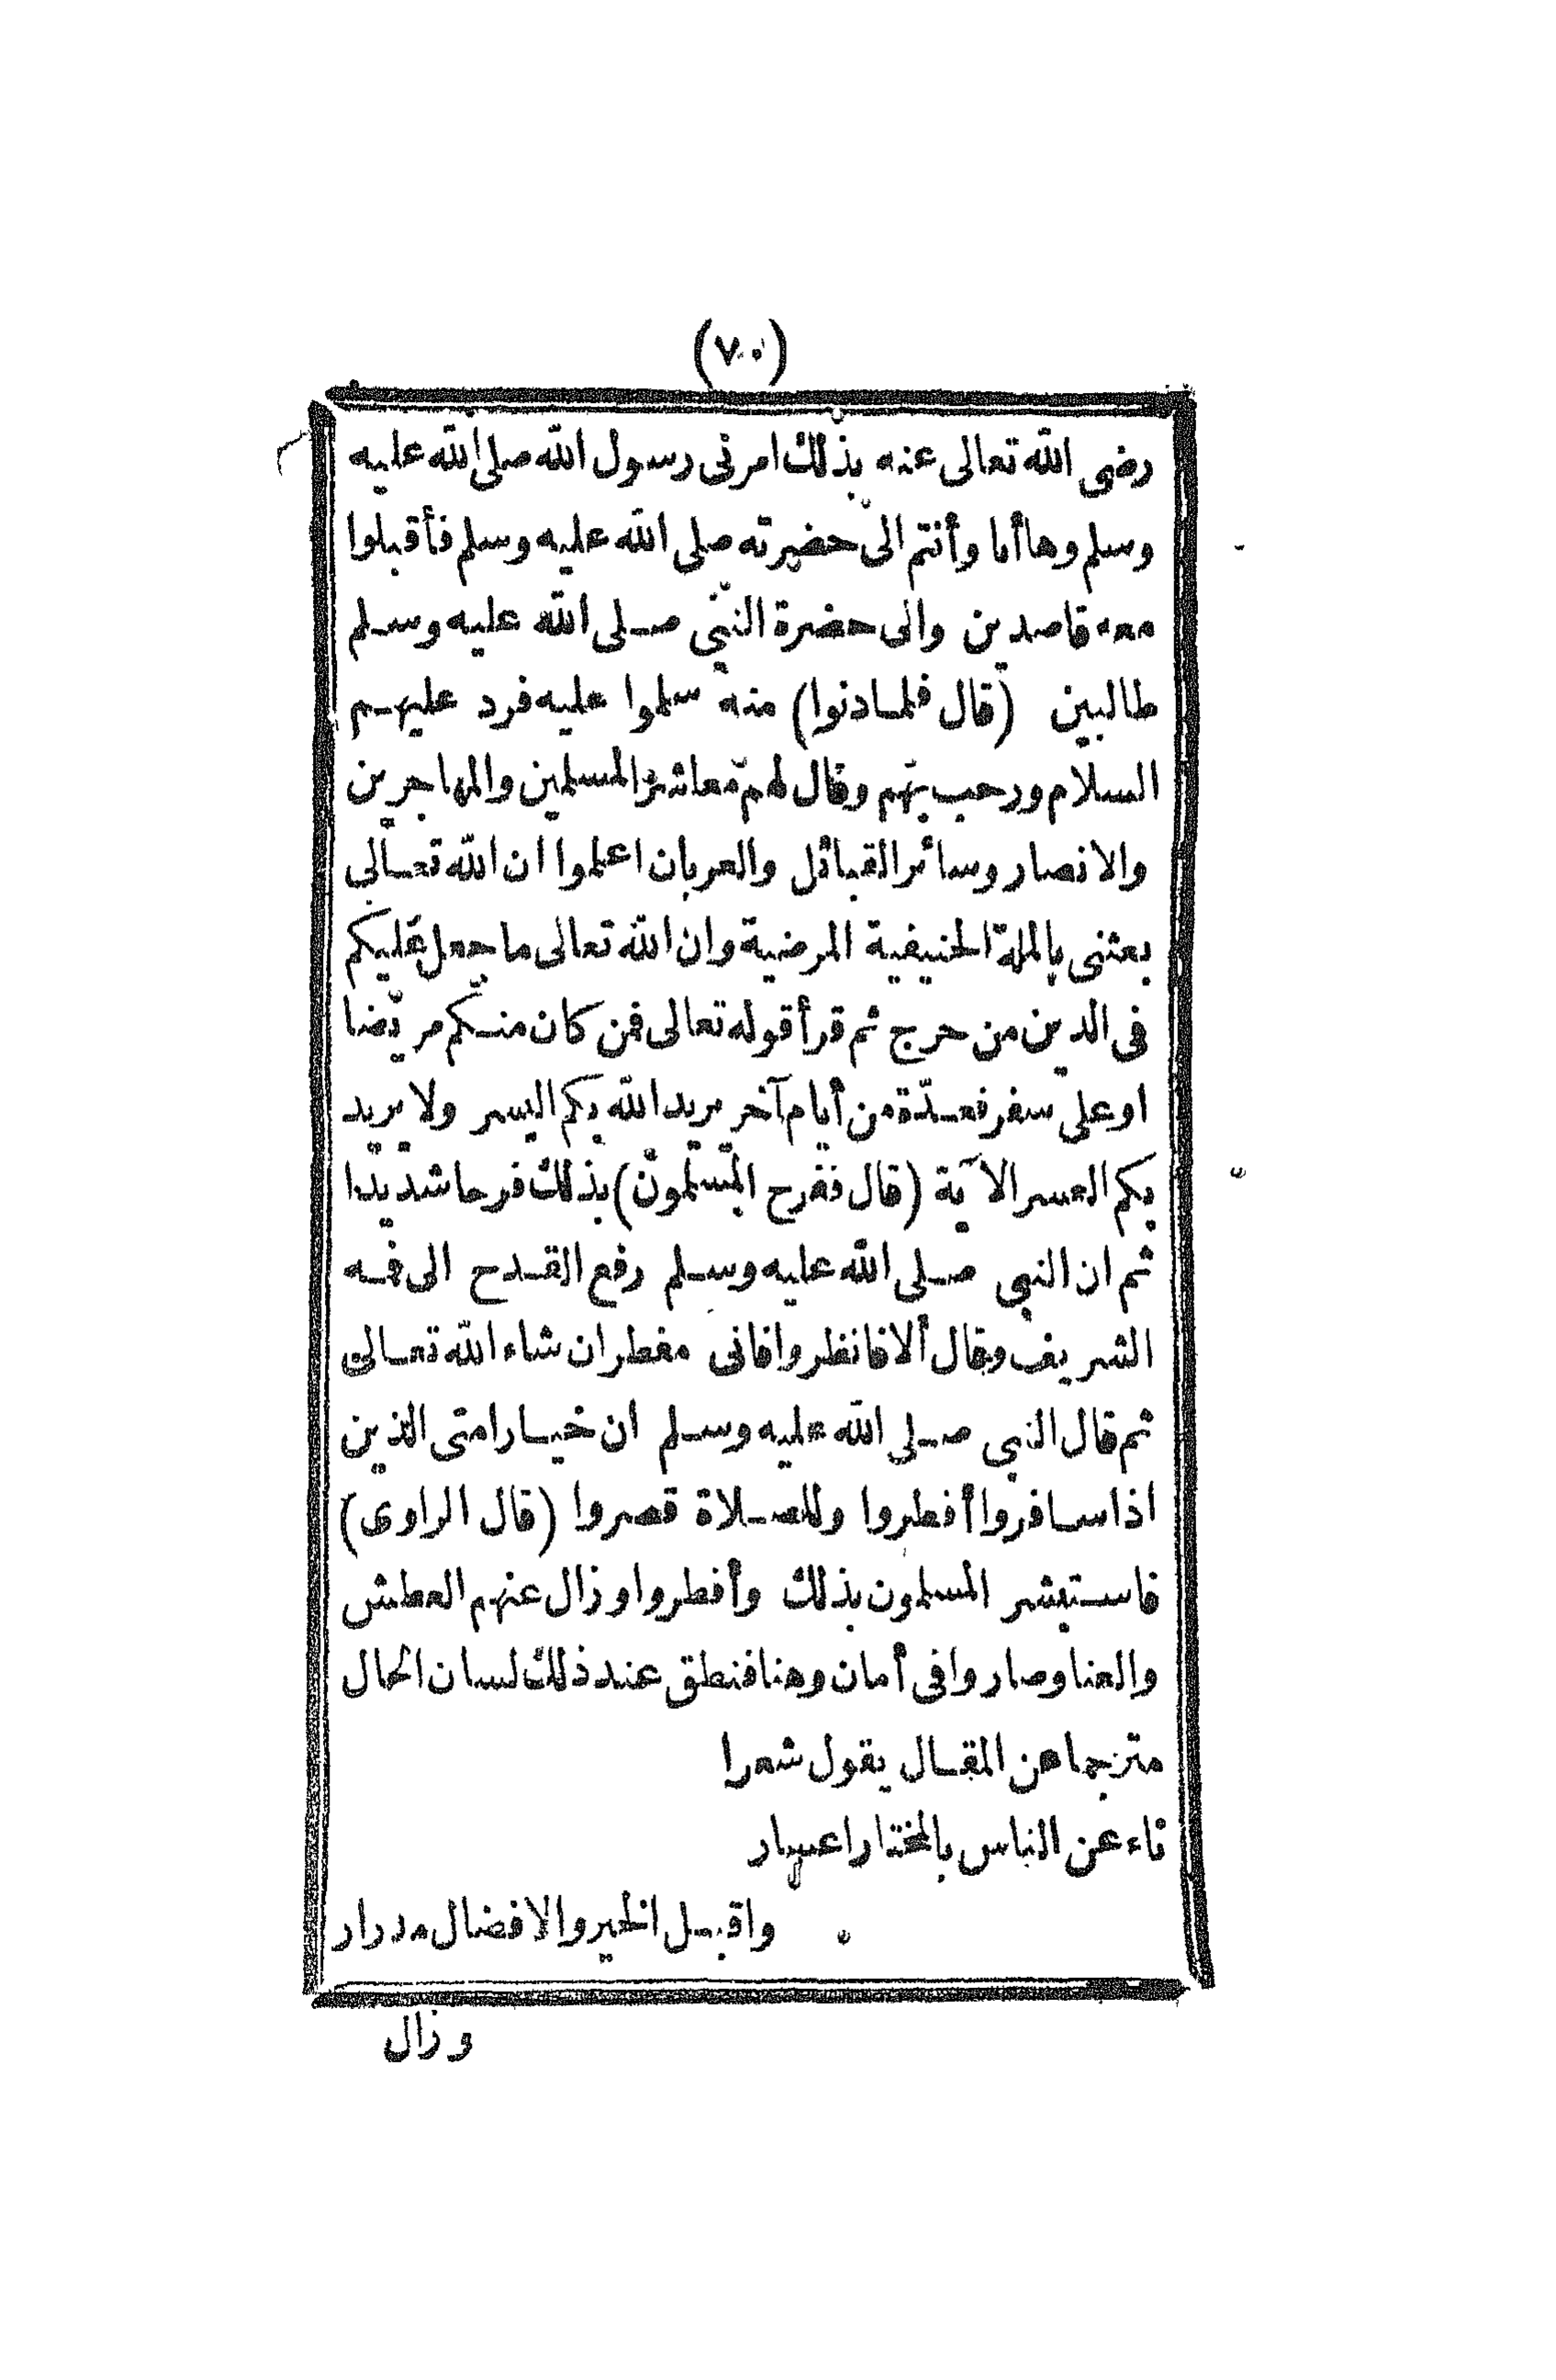 (٧٠)
رضى الله تعالى عنه بذلك امرنى رسول الله صلى الله عليه
وسلم وها أنا وأنتم الى حضرته صلى الله عليه وسلم فأقبلوا
معه قاصدين والى حضرة النبى صلى الله عليه وسلم
طالبين (قال فلما دنوا) منه سلموا عليه فرد عليهم
السلام ورحب بهم وقال لهم معاشر المسلمين والمهاجرين
والانصار وسائر القبائل والعربان اعلموا ان الله تعالى
بعثنى بالملة الحنيفية المرضية وان الله تعالى ما جعل عليكم
فى الدين من حرج ثم قرأ قوله تعالى فمن كان منكم مريضا
او على سفر فعدّة من أيام آخر يريد الله بكم اليسر ولا يريد
بكم العسر الآية (قال ففرح المسلمون) بذلك فرحا شديدا
ثم ان النبى صلى الله عليه وسلم رفع القدح الى فمه
الشريف وقال ألا فانظروا فانى مفطر ان شاء الله تعالى
ثم قال النبى صلى الله عليه وسلم ان خيار امتى الذين
اذا سافروا أفطروا وللصلاة قصروا (قال الراوى)
فاستبشر المسلمون بذلك وأفطروا وزال عنهم العطش
والعنا وصاروا فى أمان وهنا فنطق عند ذلك لسان الحال
مترجما عن المقال يقول شعرا
ناء عن الناس بالمختار اعسار
واقبل الخير والافضال مدرار
وزال